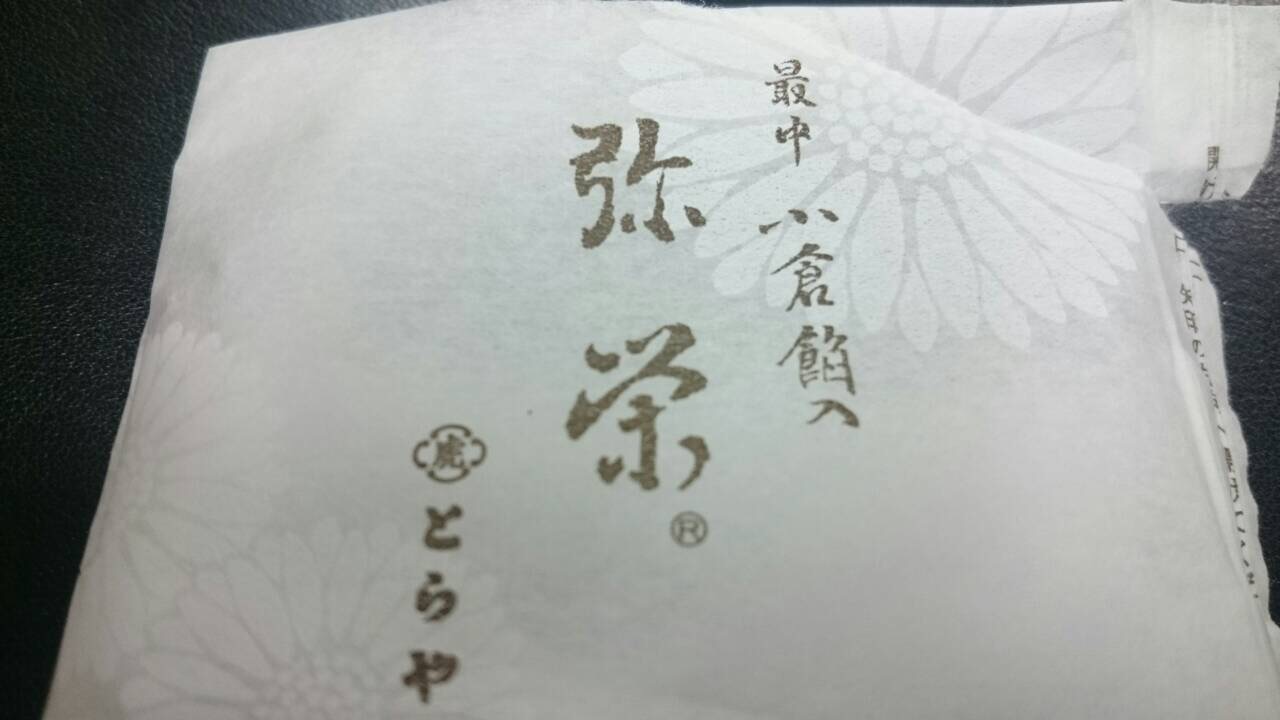 最中 小倉餡入
弥栄®
虎 とらや